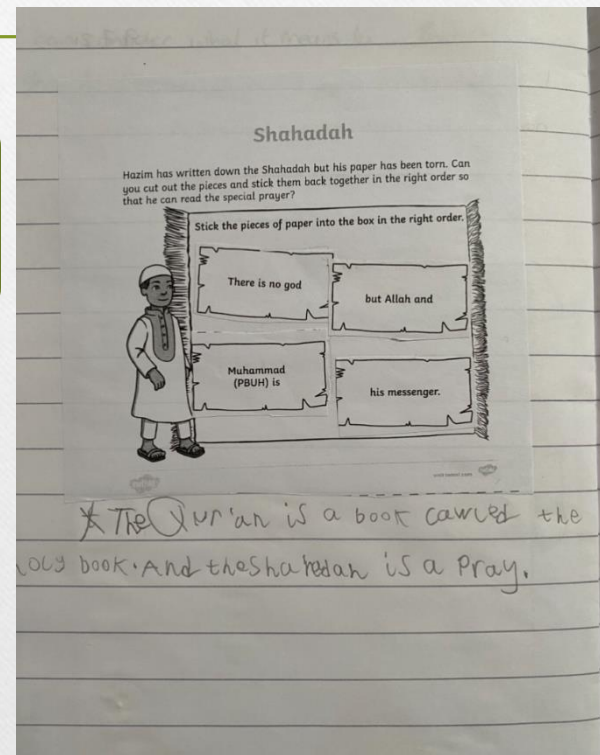 Shahadah
Hazim has written down the Shahadah but his paper has been torn. Can
you cut out the pieces and stick them back together in the right order so
that he can read the special prayer?
Stick the pieces of paper into the box in the right order.
There is no god
but Allah and
Muhammad
(PBUH) is
his messenger.
The Qur'an is a book cawled the
holy book. And the Shahadah is a Pray.